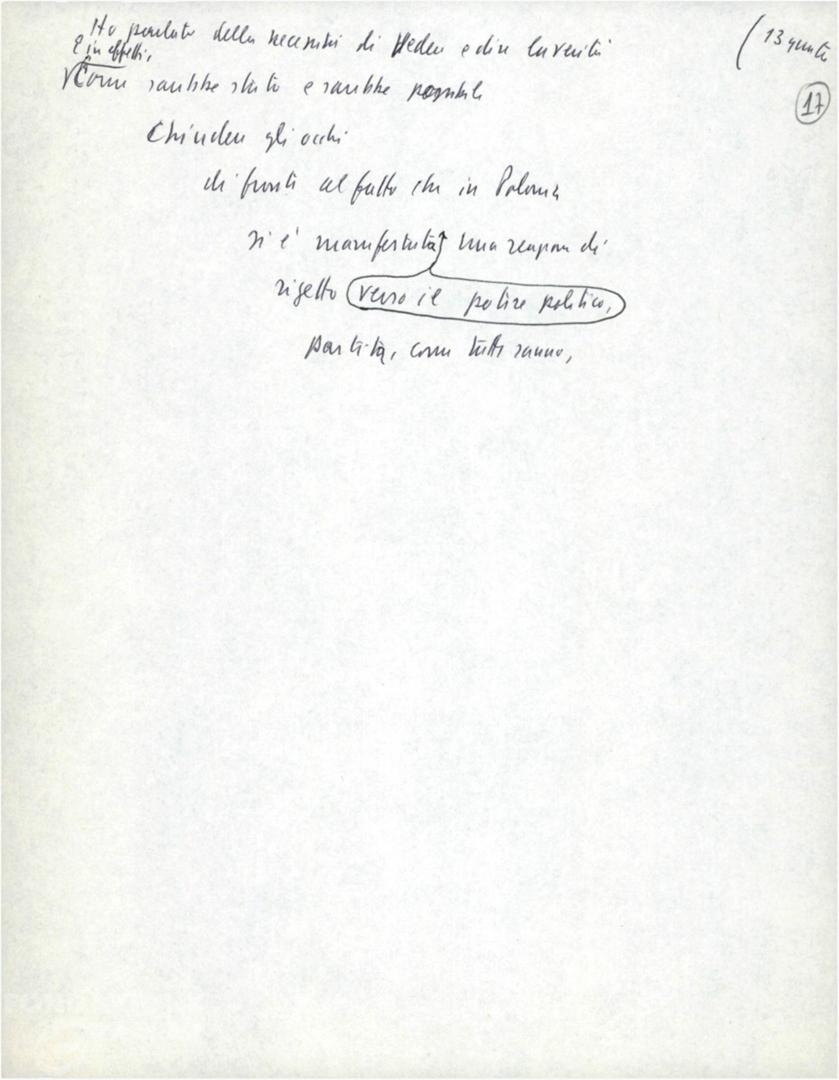 Ho parlato della necessità di vedere e dire la verità
(13
17
E in effetti,
Come sarebbe stato e sarebbe possibile
Chiudere gli occhi
di fronte al fatto che in Polonia
si è manifestata una reazione di
rigetto verso il potere politico,
partita, come tutti sanno,